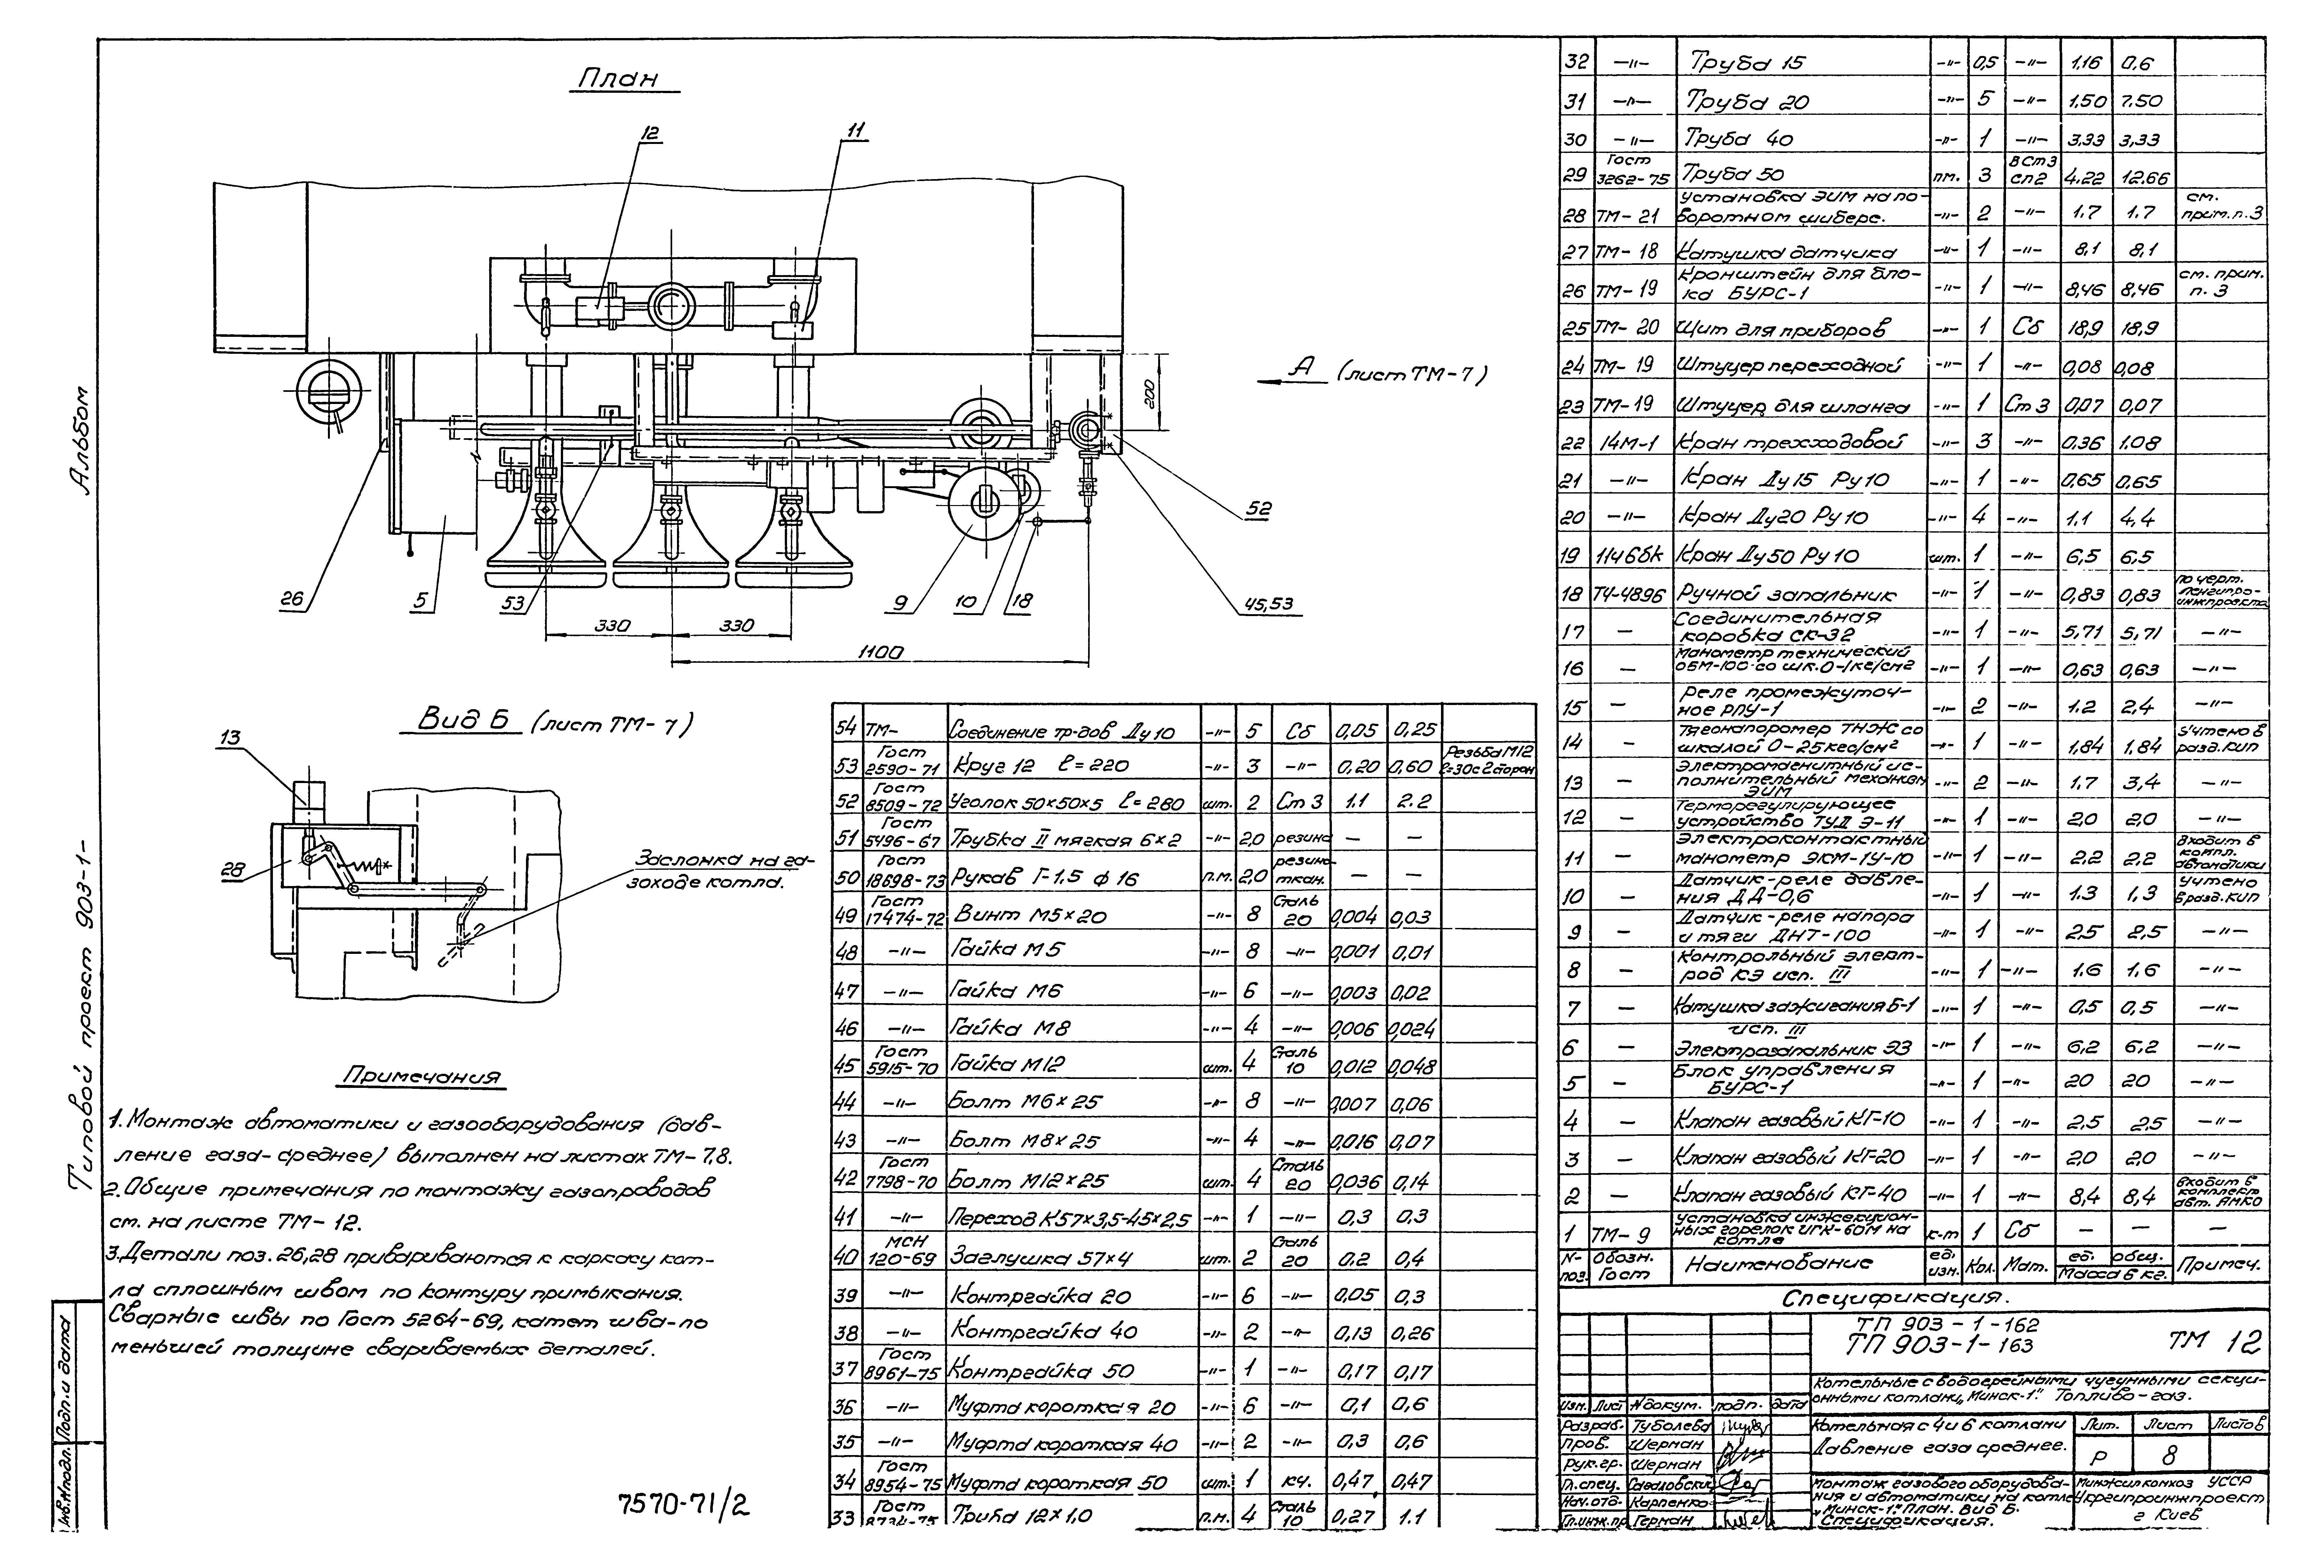 План
12
11
А (лист ТМ-7)
200
26
5
53
9
10
18
52
45,53
330
330
1100
Альбом
Типовой проект 903-1-
Инв.№подл. Подп. и дата
Вид Б (лист ТМ-7)
13
28
Заслонка на га-
зоходе котла.
Примечания
1. Монтаж автоматики и газооборудования (дав-
ление газа-среднее) выполнен на листах ТМ-7,8.
2. Общие примечания по монтажу газопроводов
см. на листе ТМ-12.
3. Детали поз. 26,28 привариваются к каркасу кот-
ла сплошным швом по контуру примыкания.
Сварные швы по Гост 5264-69, катет шва-по
меньшей толщине свариваемых деталей.
7570-71/2
54 ТМ- Соединение тр-дов Ду10 -"- 5 Сб 0,05 0,25
53 Гост 2590-71 Круг 12 ℓ=220 -"- 3 -"- 0,20 0,60 Резьба М12 ℓ=30 с 2 сторон
52 Гост 8509-72 Уголок 50×50×5 ℓ=280 шт. 2 Ст 3 1.1 2.2
51 Гост 5496-67 Трубка II мягкая 6×2 -"- 2,0 резина — —
50 Гост 18698-73 Рукав Г-1,5 ф 16 п.м. 2,0 резино-ткан. — —
49 Гост 17474-72 Винт М5×20 -"- 8 Сталь 20 0,004 0,03
48 -"- Гайка М5 -"- 8 -"- 0,001 0,01
47 -"- Гайка М6 -"- 6 -"- 0,003 0,02
46 -"- Гайка М8 -"- 4 -"- 0,006 0,024
45 Гост 5915-70 Гайка М12 шт. 4 Сталь 10 0,012 0,048
44 -"- Болт М6×25 -"- 8 -"- 0,007 0,06
43 -"- Болт М8×25 -"- 4 -"- 0,016 0,07
42 Гост 7798-70 Болт М12×25 шт. 4 Сталь 20 0,036 0,14
41 -"- Переход К57×3,5-45×2,5 -"- 1 -"- 0,3 0,3
40 МСН 120-69 Заглушка 57×4 шт. 2 Сталь 20 0.2 0,4
39 -"- Контргайка 20 -"- 6 -"- 0,05 0,3
38 -"- Контргайка 40 -"- 2 -"- 0,13 0,26
37 Гост 8961-75 Контргайка 50 -"- 1 -"- 0,17 0,17
36 -"- Муфта короткая 20 -"- 6 -"- 0,1 0,6
35 -"- Муфта короткая 40 -"- 2 -"- 0,3 0,6
34 Гост 8954-75 Муфта короткая 50 шт. 1 кч. 0,47 0,47
33 Гост 8734-75 Труба 12×1,0 п.м. 4 Сталь 10 0,27 1.1
32 -"- Труба 15 -"- 0,5 -"- 1,16 0,6
31 -"- Труба 20 -"- 5 -"- 1,50 7.50
30 -"- Труба 40 -"- 1 -"- 3,33 3,33
29 Гост 3262-75 Труба 50 пм. 3 ВСт3 сп2 4.22 12.66
28 ТМ-21 Установка ЭИМ на по-воротном шибере. -"- 2 -"- 1.7 1.7 см. прим. п. 3
27 ТМ-18 Катушка датчика -"- 1 -"- 8,1 8,1
26 ТМ-19 Кронштейн для бло-ка БУРС-1 -"- 1 -"- 8,46 8,46 см. прим. п. 3
25 ТМ-20 Щит для приборов -"- 1 Сб 18,9 18,9
24 ТМ-19 Штуцер переходной -"- 1 -"- 0,08 0,08
23 ТМ-19 Штуцер для шланга -"- 1 Ст 3 0,07 0,07
22 14М-1 Кран трехходовой -"- 3 -"- 0.36 1.08
21 -"- Кран Ду15 Ру10 -"- 1 -"- 0,65 0,65
20 -"- Кран Ду20 Ру10 -"- 4 -"- 1.1 4,4
19 11ч6бк Кран Ду50 Ру10 шт. 1 -"- 6,5 6,5
18 ТУ-4896 Ручной запальник -"- 1 -"- 0,83 0,83 по черт. Ленгипро-инжпроекта
17 — Соединительная коробка СК-32 -"- 1 -"- 5,71 5,71 -"-
16 — Манометр технический ОБМ-100 со шк. 0-1кг/см² -"- 1 -"- 0,63 0,63 -"-
15 — Реле промежуточ-ное РПУ-1 -"- 2 -"- 1.2 2,4 -"-
14 — Тягонапоромер ТНЖ со шкалой 0-25кгс/см² -"- 1 -"- 1,84 1,84 Учтено в разд. кип
13 — Электромагнитный ис-полнительный механизм ЭИМ -"- 2 -"- 1.7 3,4 -"-
12 — Терморегулирующее устройство ТУДЭ-11 -"- 1 -"- 2,0 2,0 -"-
11 — Электроконтактный манометр ЭКМ-1У-10 -"- 1 -"- 2.2 2.2 Входит в компл. автоматики
10 — Датчик-реле давле-ния ДД-0,6 -"- 1 -"- 1.3 1,3 Учтено в разд. кип
9 — Датчик-реле напора и тяги ДНТ-100 -"- 1 -"- 2.5 2,5 -"-
8 — Контрольный элект-род КЭ исп. III -"- 1 -"- 1.6 1,6 -"-
7 — Катушка зажигания Б-1 -"- 1 -"- 0,5 0,5 -"-
6 — исп. III Электрозапальник ЭЗ -"- 1 -"- 6,2 6,2 -"-
5 — Блок управления БУРС-1 -"- 1 -"- 20 20 -"-
4 — Клапан газовый КГ-10 -"- 1 -"- 2,5 2,5 -"-
3 — Клапан газовый КГ-20 -"- 1 -"- 2,0 2,0 -"-
2 — Клапан газовый КГ-40 -"- 1 -"- 8,4 8,4 входит в комплект авт. АМКО
1 ТМ-9 Установка инжекцион-ных горелок ИГК-60М на котле к-т 1 Сб — — —
N- поз. Обозн. Гост Наименование ед. изм. Кол. Мат. ед. общ. Масса в кг. Примеч.
Спецификация.
ТП 903-1-162
ТП 903-1-163
ТМ 12
Котельные с водогрейными чугунными секци-
онными котлами „Минск-1". Топливо-газ.
Изм. Лист №докум. подп. дата
Разраб. Туболева
Пров. Шерман
Рук.гр. Шерман
Гл.спец.
Нач.отд. Карпенко
Гл.инж.пр Герман
Котельная с 4 и 6 котлами
Давление газа среднее.
Лит. Лист Листов
Р 8
Монтаж газового оборудова-
ния и автоматики на котле
„Минск-1". План. Вид Б.
Спецификация.
Минжилкомхоз УССР
Укргипроинжпроект
г Киев